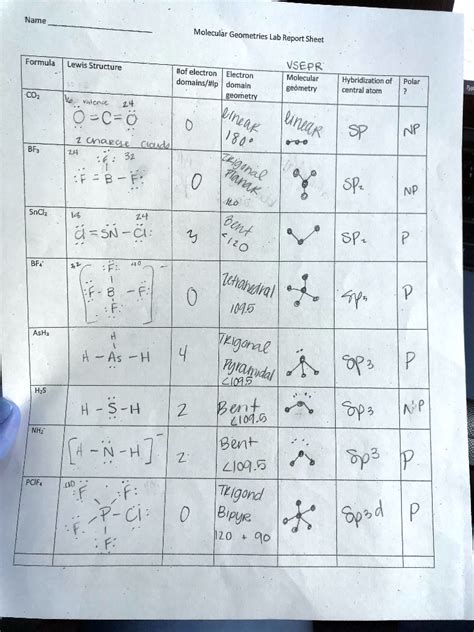 Name
Molecular Geometries Lab Report Sheet
VSEPR
Formula
Lewis Structure
#of electron domains/#lp
Electron domain geometry
Molecular geometry
Hybridization of central atom
Polar ?
CO₂
valence 24
O = C = O
2 charge cloud
0
linear
180°
linear
SP
NP
BF₃
24
F 32
F - B - F
0
Trigonal
Planar
120
SP₂
NP
SnCl₂
18
24
Cl = SN - Cl:
3
Bent
<120
SP₂
P
BF₄⁻
32
40
F
F - B - F
F
0
Tetrahedral
109.5
P
AsH₃
H
H - As - H
4
Trigonal
Pyramidal
<109.5
SP3
P
H₂S
H - S - H
2
Bent
<109.5
SP3
NH₂⁻
[H - N - H]⁻
2
Bent
<109.5
SP3
P
PClF₄
40
F F:
P - Cl:
F F:
0
Trigonal
Bipyr
120 + 90
SP3d
P